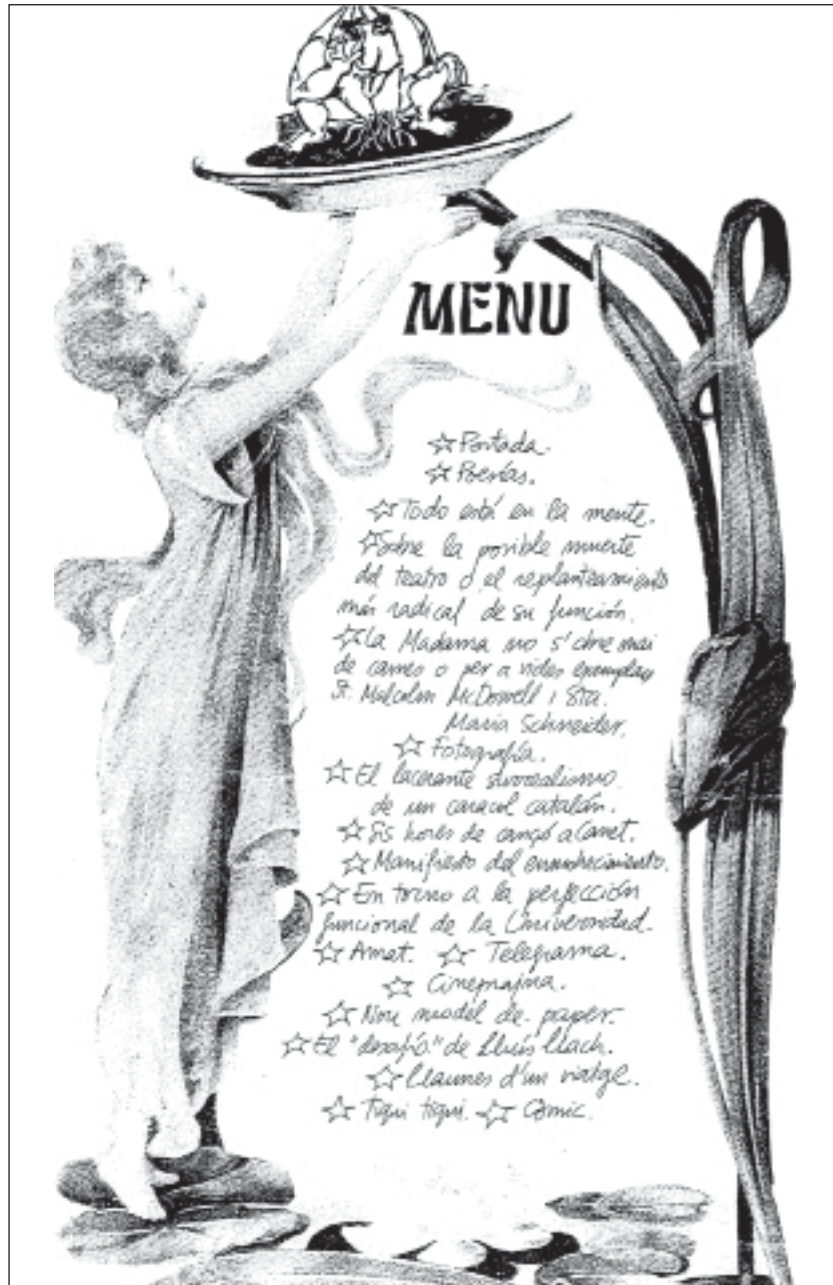 MENU
☆ Portada.
☆ Poesías.
☆ Todo está en la mente.
☆ Sobre la posible muerte
del teatro o el replanteamiento
más radical de su función.
☆ La Madama no s'obre mai
de cames o per a vides exemplars
St. Malcolm McDowell i Sta.
Maria Schneider.
☆ Fotografía.
☆ El lacerante surrealismo
de un caracol catalán.
☆ Sis hores de cançó a Canet.
☆ Manifiesto del
☆ En torno a la perfección
funcional de la Universidad.
☆ Amat. ☆ Telegrama.
☆
☆ Nou model de paper.
☆ El "desafío" de Lluís Llach.
☆ Llaunes d'un viatge.
☆ Tiqui tiqui. ☆ Còmic.